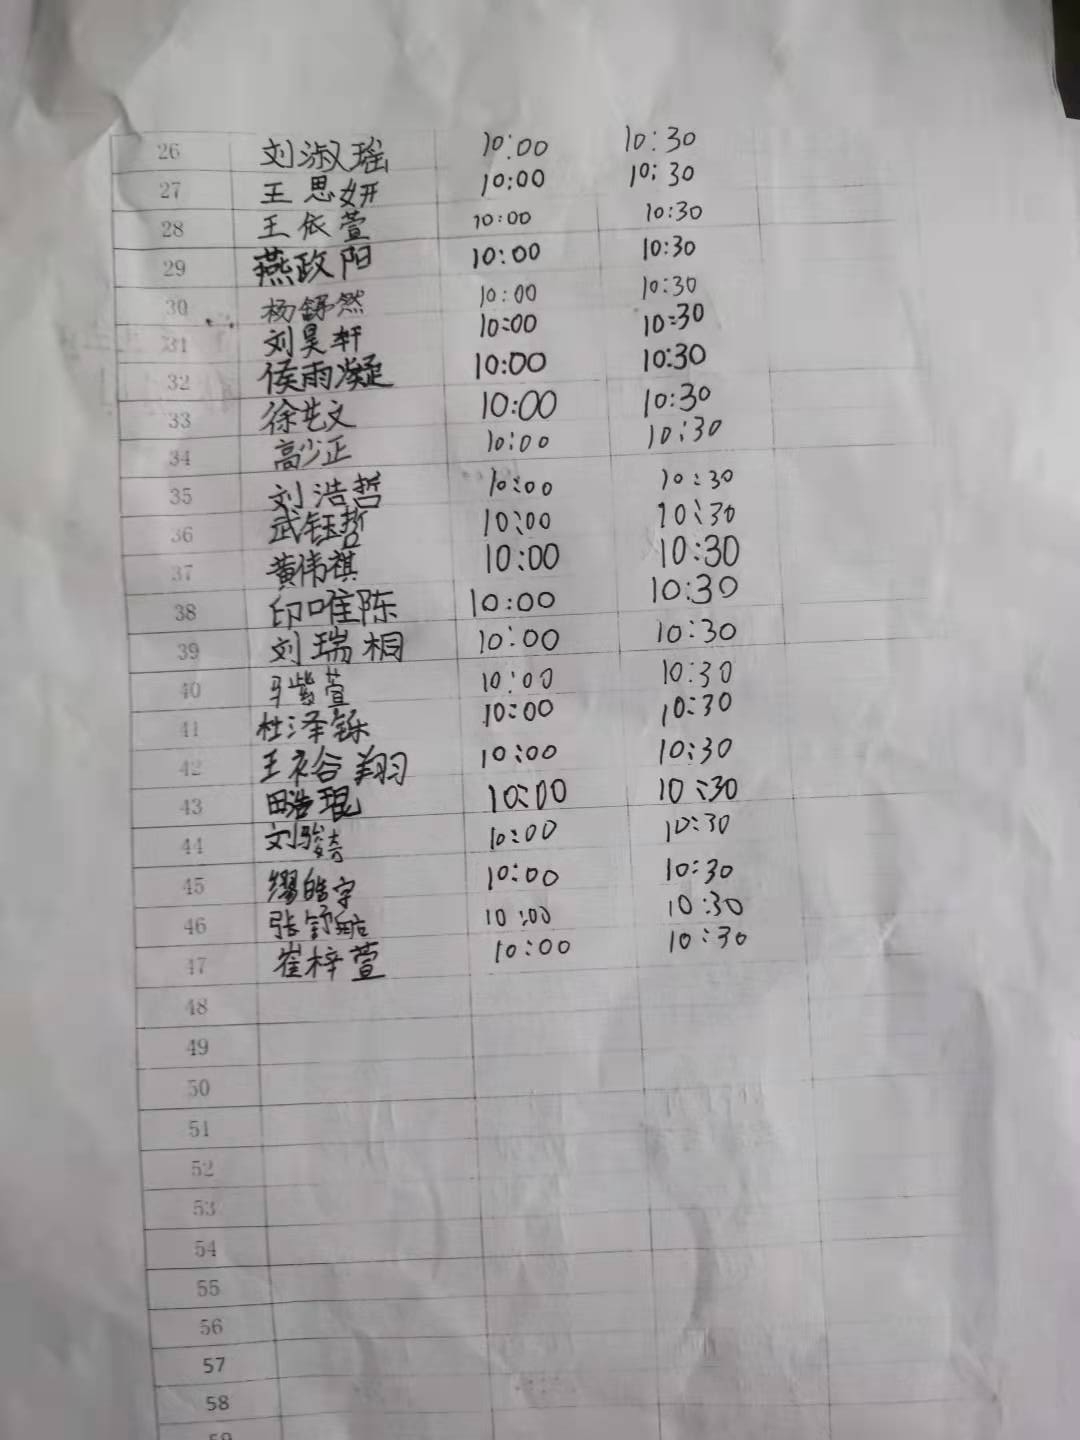 26 刘淑瑶 10:00 10:30
27 王思妍 10:00 10:30
28 王依萱 10:00 10:30
29 燕政阳 10:00 10:30
30 杨舒然 10:00 10:30
31 刘昊轩 10:00 10:30
32 侯雨凝 10:00 10:30
33 徐艺文 10:00 10:30
34 高少正 10:00 10:30
35 刘浩哲 10:00 10:30
36 武钰哲 10:00 10:30
37 黄伟祺 10:00 10:30
38 印唯陈 10:00 10:30
39 刘瑞桐 10:00 10:30
40 紫萱 10:00 10:30
41 杜泽铄 10:00 10:30
42 王裕翔 10:00 10:30
43 田浩琨 10:00 10:30
44 刘骏 10:00 10:30
45 缪皓宇 10:00 10:30
46 张舒 10:00 10:30
47 崔梓萱 10:00 10:30
48
49
50
51
52
53
54
55
56
57
58
59